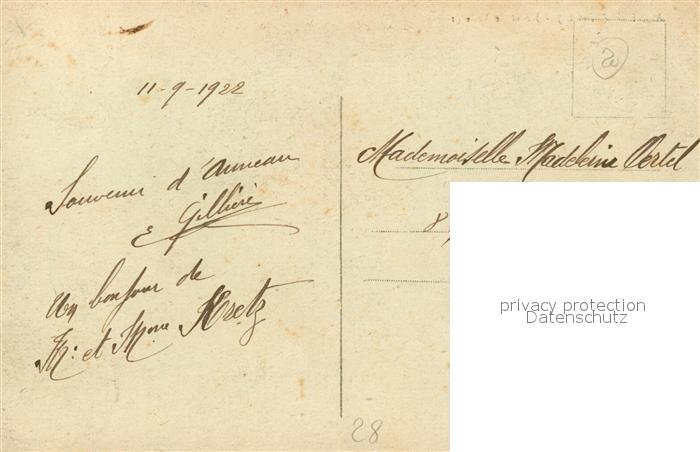 11-9-1922
Souvenir d'Auneau
E Gillière
Un bonjour de
Mr: et Mme Kretz
Mademoiselle Madeleine Oertel
8,
privacy protection
Datenschutz
28